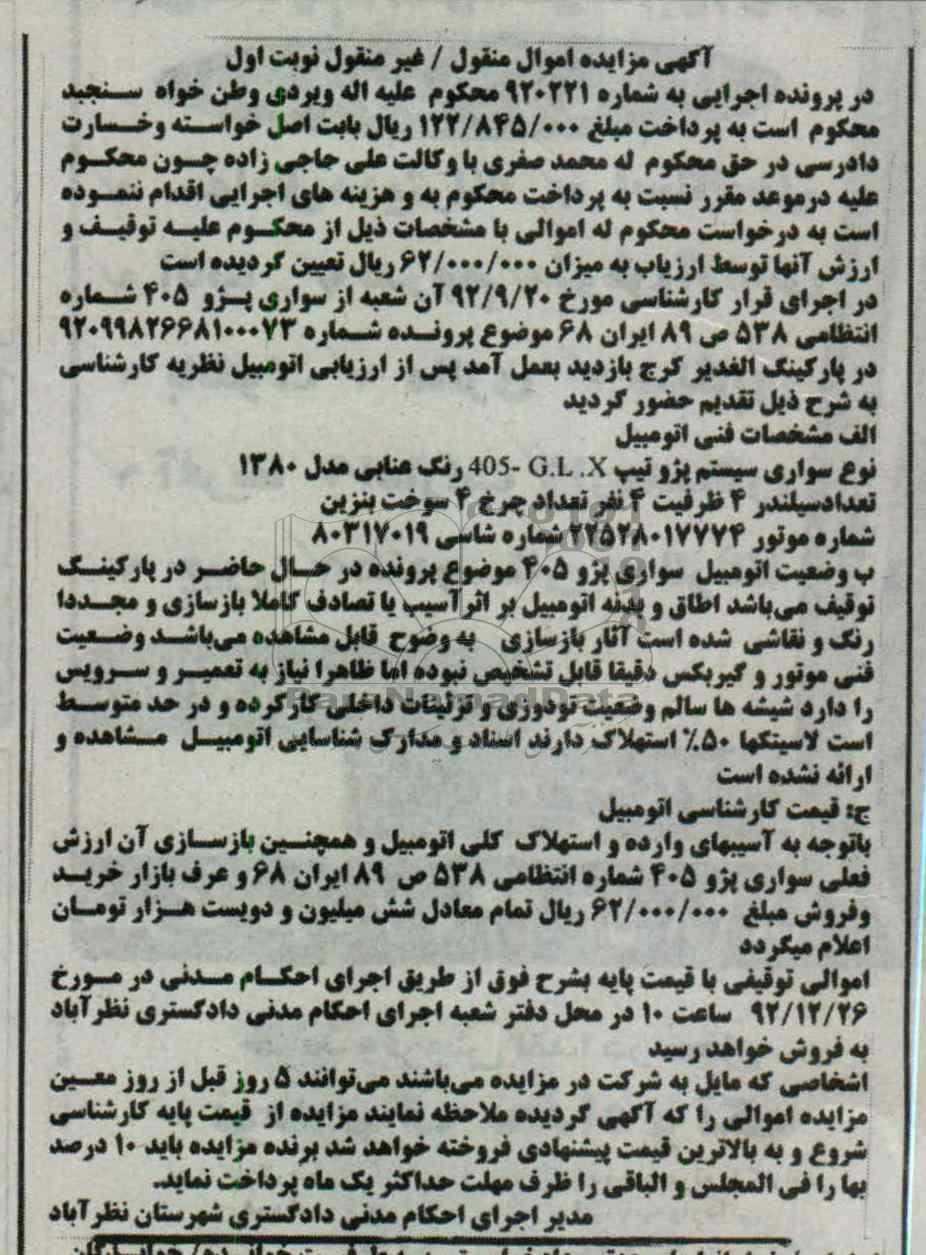 آگهی مزایده اموال منقول / غیر منقول نوبت اول
در پرونده اجرایی به شماره ۹۲۰۲۲۱ محکوم علیه اله ویردی وطن خواه سنجبد
محکوم است به پرداخت مبلغ ۱۲۲/۸۴۵/۰۰۰ ریال بابت اصل خواسته وخسارت
دادرسی در حق محکوم له محمد صفری با وکالت علی حاجی زاده چون محکوم
علیه درموعد مقرر نسبت به پرداخت محکوم به و هزینه های اجرایی اقدام ننموده
است به درخواست محکوم له اموالی با مشخصات ذیل از محکوم علیه توقیف و
ارزش آنها توسط ارزیاب به میزان ۶۲/۰۰۰/۰۰۰ ریال تعیین گردیده است
در اجرای قرار کارشناسی مورخ ۹۲/۹/۲۰ آن شعبه از سواری پژو ۴۰۵ شماره
انتظامی ۵۳۸ ص ۸۹ ایران ۶۸ موضوع پرونده شماره ۹۲۰۹۹۸۲۶۶۸۱۰۰۰۷۳
در پارکینگ الغدیر کرج بازدید بعمل آمد پس از ارزیابی اتومبیل نظریه کارشناسی
به شرح ذیل تقدیم حضور گردید
الف مشخصات فنی اتومبیل
نوع سواری سیستم پژو تیپ 405- G.L .X رنگ عنابی مدل ۱۳۸۰
تعدادسیلندر ۴ ظرفیت ۴ نفر تعداد چرخ ۴ سوخت بنزین
شماره موتور ۲۲۵۲۸۰۱۷۷۷۴ شماره شاسی ۸۰۳۱۷۰۱۹
ب وضعیت اتومبیل سواری پژو ۴۰۵ موضوع پرونده در حال حاضر در پارکینگ
توقیف می‌باشد اطاق و بدنه اتومبیل بر اثرآسیب یا تصادف کاملا بازسازی و مجددا
رنگ و نقاشی شده است آثار بازسازی به وضوح قابل مشاهده می‌باشد وضعیت
فنی موتور و گیربکس دقیقا قابل تشخیص نبوده اما ظاهرا نیاز به تعمیر و سرویس
را دارد شیشه ها سالم وضعیت تودوزی و تزئینات داخلی کارکرده و در حد متوسط
است لاستیکها ۵۰٪ استهلاک دارند اسناد و مدارک شناسایی اتومبیل مشاهده و
ارائه نشده است
ج: قیمت کارشناسی اتومبیل
باتوجه به آسیبهای وارده و استهلاک کلی اتومبیل و همچنین بازسازی آن ارزش
فعلی سواری پژو ۴۰۵ شماره انتظامی ۵۳۸ ص ۸۹ ایران ۶۸ و عرف بازار خرید
وفروش مبلغ ۶۲/۰۰۰/۰۰۰ ریال تمام معادل شش میلیون و دویست هزار تومان
اعلام میگردد
اموالی توقیفی با قیمت پایه بشرح فوق از طریق اجرای احکام مدنی در مورخ
۹۲/۱۲/۲۶ ساعت ۱۰ در محل دفتر شعبه اجرای احکام مدنی دادگستری نظرآباد
به فروش خواهد رسید
اشخاصی که مایل به شرکت در مزایده می‌باشند می‌توانند ۵ روز قبل از روز معین
مزایده اموالی را که آگهی گردیده ملاحظه نمایند مزایده از قیمت پایه کارشناسی
شروع و به بالاترین قیمت پیشنهادی فروخته خواهد شد برنده مزایده باید ۱۰ درصد
بها را فی المجلس و الباقی را ظرف مهلت حداکثر یک ماه پرداخت نماید.
مدیر اجرای احکام مدنی دادگستری شهرستان نظرآباد